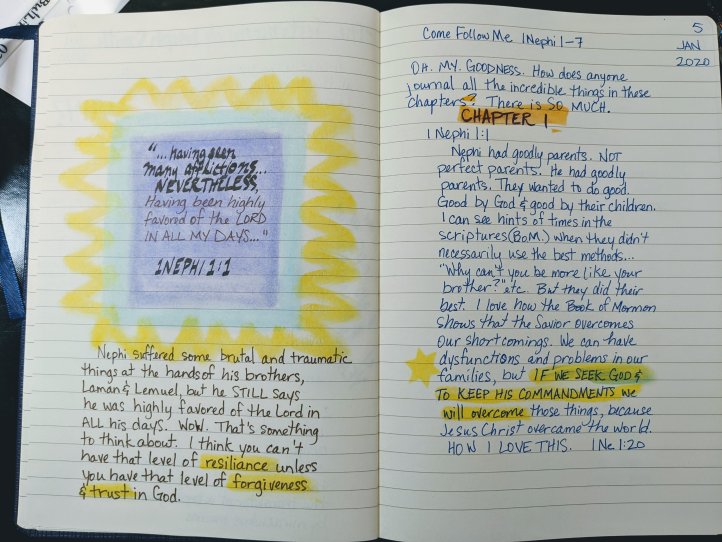 "...having seen
many afflictions...
NEVERTHELESS,
Having been highly
favored of the LORD
IN ALL MY DAYS..."
1NEPHI 1:1
Nephi suffered some brutal and traumatic
things at the hands of his brothers,
Laman & Lemuel, but he STILL says
he was highly favored of the Lord in
ALL his days. WOW. That's something
to think about. I think you can't
have that level of resiliance unless
you have that level of forgiveness
& trust in God.
5
JAN
2020
Come Follow Me 1Nephi 1-7
OH. MY. GOODNESS. How does anyone
journal all the incredible things in these
chapters? There is SO MUCH.
CHAPTER 1
1 Nephi 1:1
Nephi had goodly parents. NOT
perfect parents. He had goodly
parents. They wanted to do good.
Good by God & good by their children.
I can see hints of times in the
scriptures (B.o.M.) when they didn't
necessarily use the best methods...
"Why can't you be more like your
brother?" etc. But they did their
best. I love how the Book of Mormon
shows that the Savior overcomes
our shortcomings. We can have
dysfunctions and problems in our
families, but IF WE SEEK GOD &
TO KEEP HIS COMMANDMENTS we
will overcome those things, because
Jesus Christ overcame the world.
HOW I LOVE THIS. 1 Ne 1:20